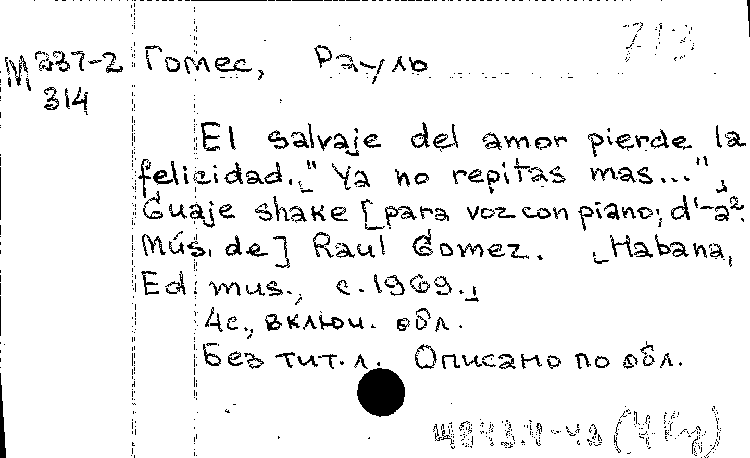 713
М 237-2 Гомес, Рауль
314
El salvaje del amor pierde la
felicidad. „ "Ya no repitas mas..."„
Guaje shake [para voz con piano; d¹-a².
Mús. de] Raul Gomez. [Habana,
Ed. mus., c. 1969.]
4с., включ. обл.
Без тит. л. Описано по обл.
Щ843.4-43 (4 Ку)